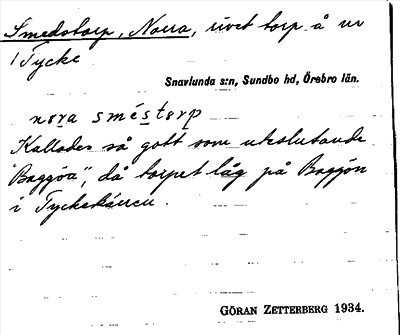 Smedstorp, Norra, rivet torp å nr
1 Tycke
Snavlunda s:n, Sundbo hd, Örebro län.
nora smés torp
Kallades så gott som uteslutande
"Baggöa", då torpet låg på Baggön
i Tyckekärren.
GÖRAN ZETTERBERG 1934.